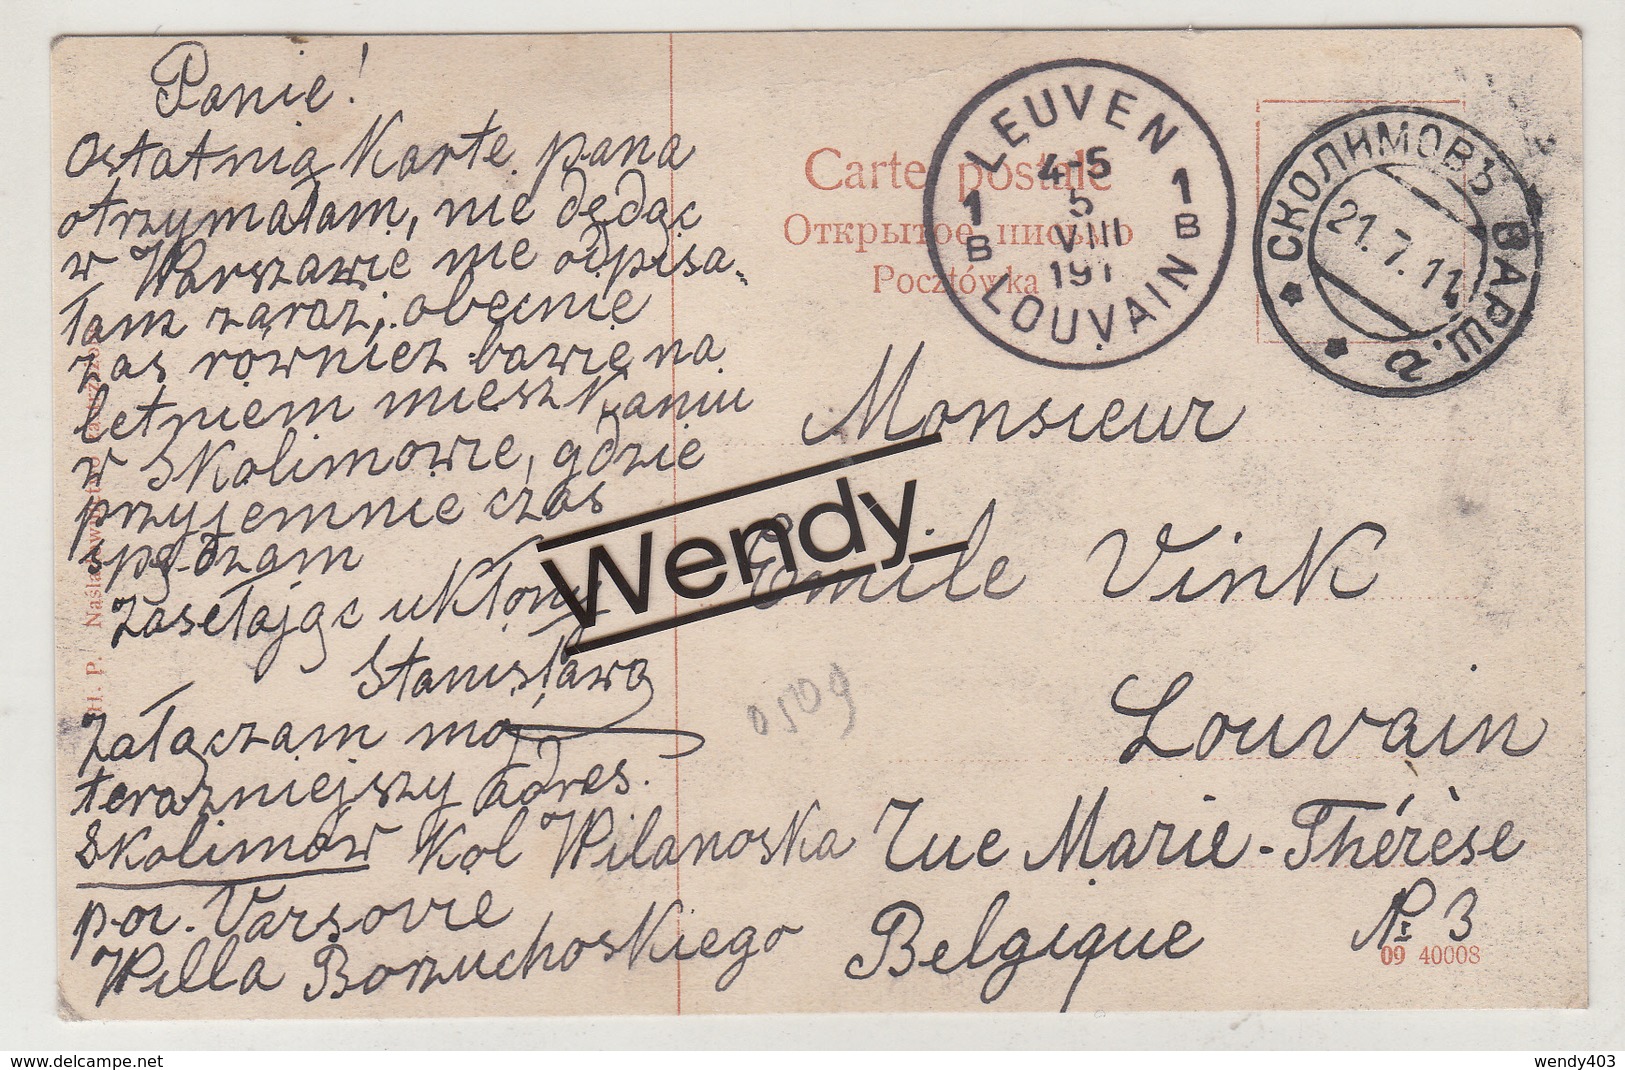 Panie!
Ostatnią Kartę pana
otrzymałam, nie dędąc
w Warszawie nie odpisa-
łam zaraz, obecnie
zas równiez bawię na
letniem mieszkaniu
w Skolimowie, gdzie
przyjemnie czas
spędzam
Zasełając ukłony
Stanisława
Załączam mój
terazniejszy adres.
Skolimów Kol Wilanoska
por. Varsovie
Willa Borzuchoskiego
Carte postale
Открытое письмо
Pocztówka
LEUVEN
4-5
5
VIII
191
1 B
1 B
LOUVAIN
СКОЛИМОВЪ ВАРШ.
21.7.14
а
Monsieur
Emile Vink
Louvain
rue Marie-Thérèse
№ 3
Belgique
09 40008
0509
H. P. Naśladownictwo
Wendy
delcampe.net
wendy403